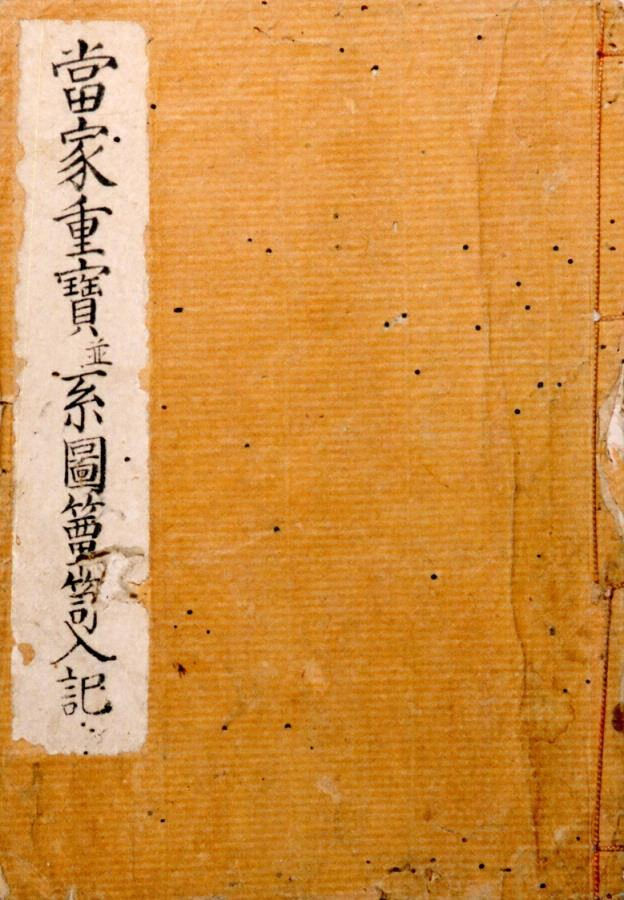 當家重寶並系圖簞笥入記